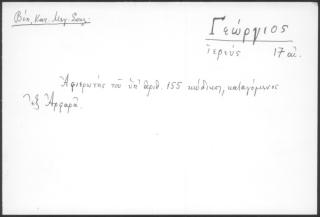 Βιβλ. Κων. Μεγ. Σπηλ.
Γεώργιος
ἱερεύς 17 αἰ.
Ἀφιερωτής τοῦ ὑπ' ἀριθ. 155 κώδικος, καταγόμενος
ἐξ Ἀρφαρᾶ.